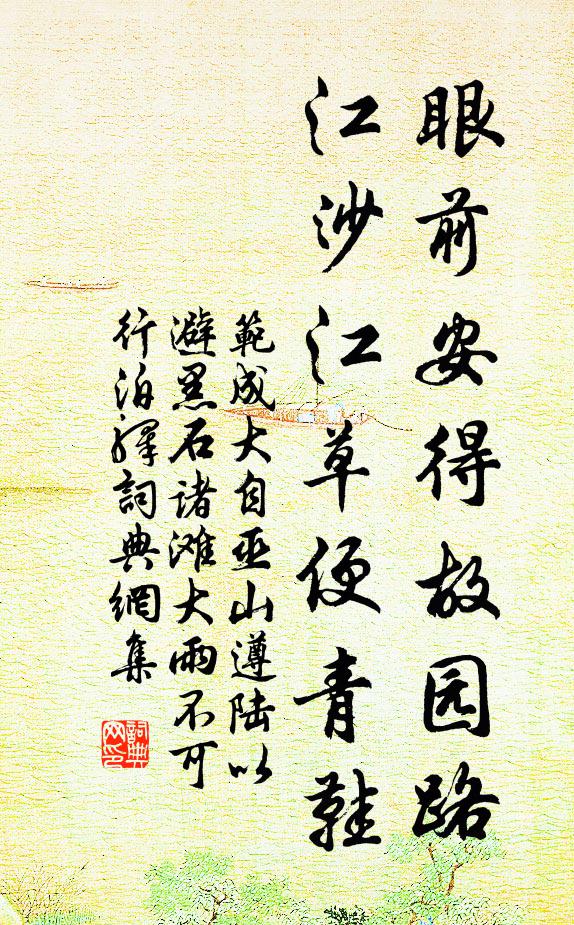 眼前安得故园路
江沙江草便青鞋
範成大自巫山遵陆以
避黑石诸滩大雨不可
行泊驛詞典網集
詞典
网印